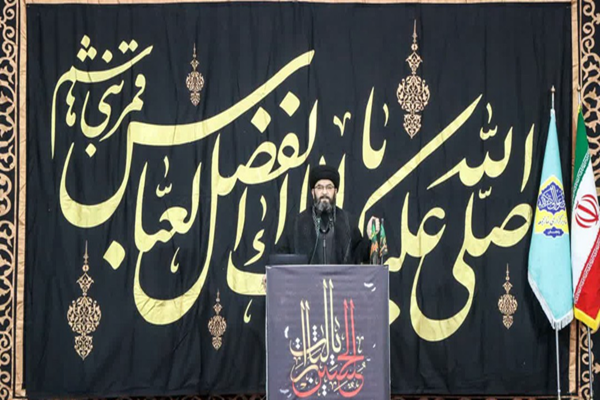 صلّی الله علیك یا ابا الفضل العبّاس
قمر بنی هاشم
یا لثارات الحسین